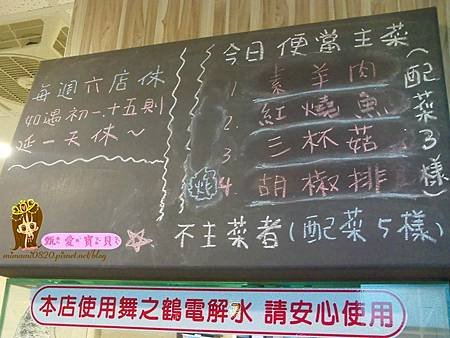 每週六店休
如遇初一.十五則
延一天休～
今日便當主菜(配菜3樣)
1. 素羊肉
2. 紅燒魚
3. 三杯菇
炸 4. 胡椒排
不主菜者(配菜5樣)
甄愛寶貝
mimami0820.pixnet.net/blog
本店使用舞之鶴電解水 請安心使用